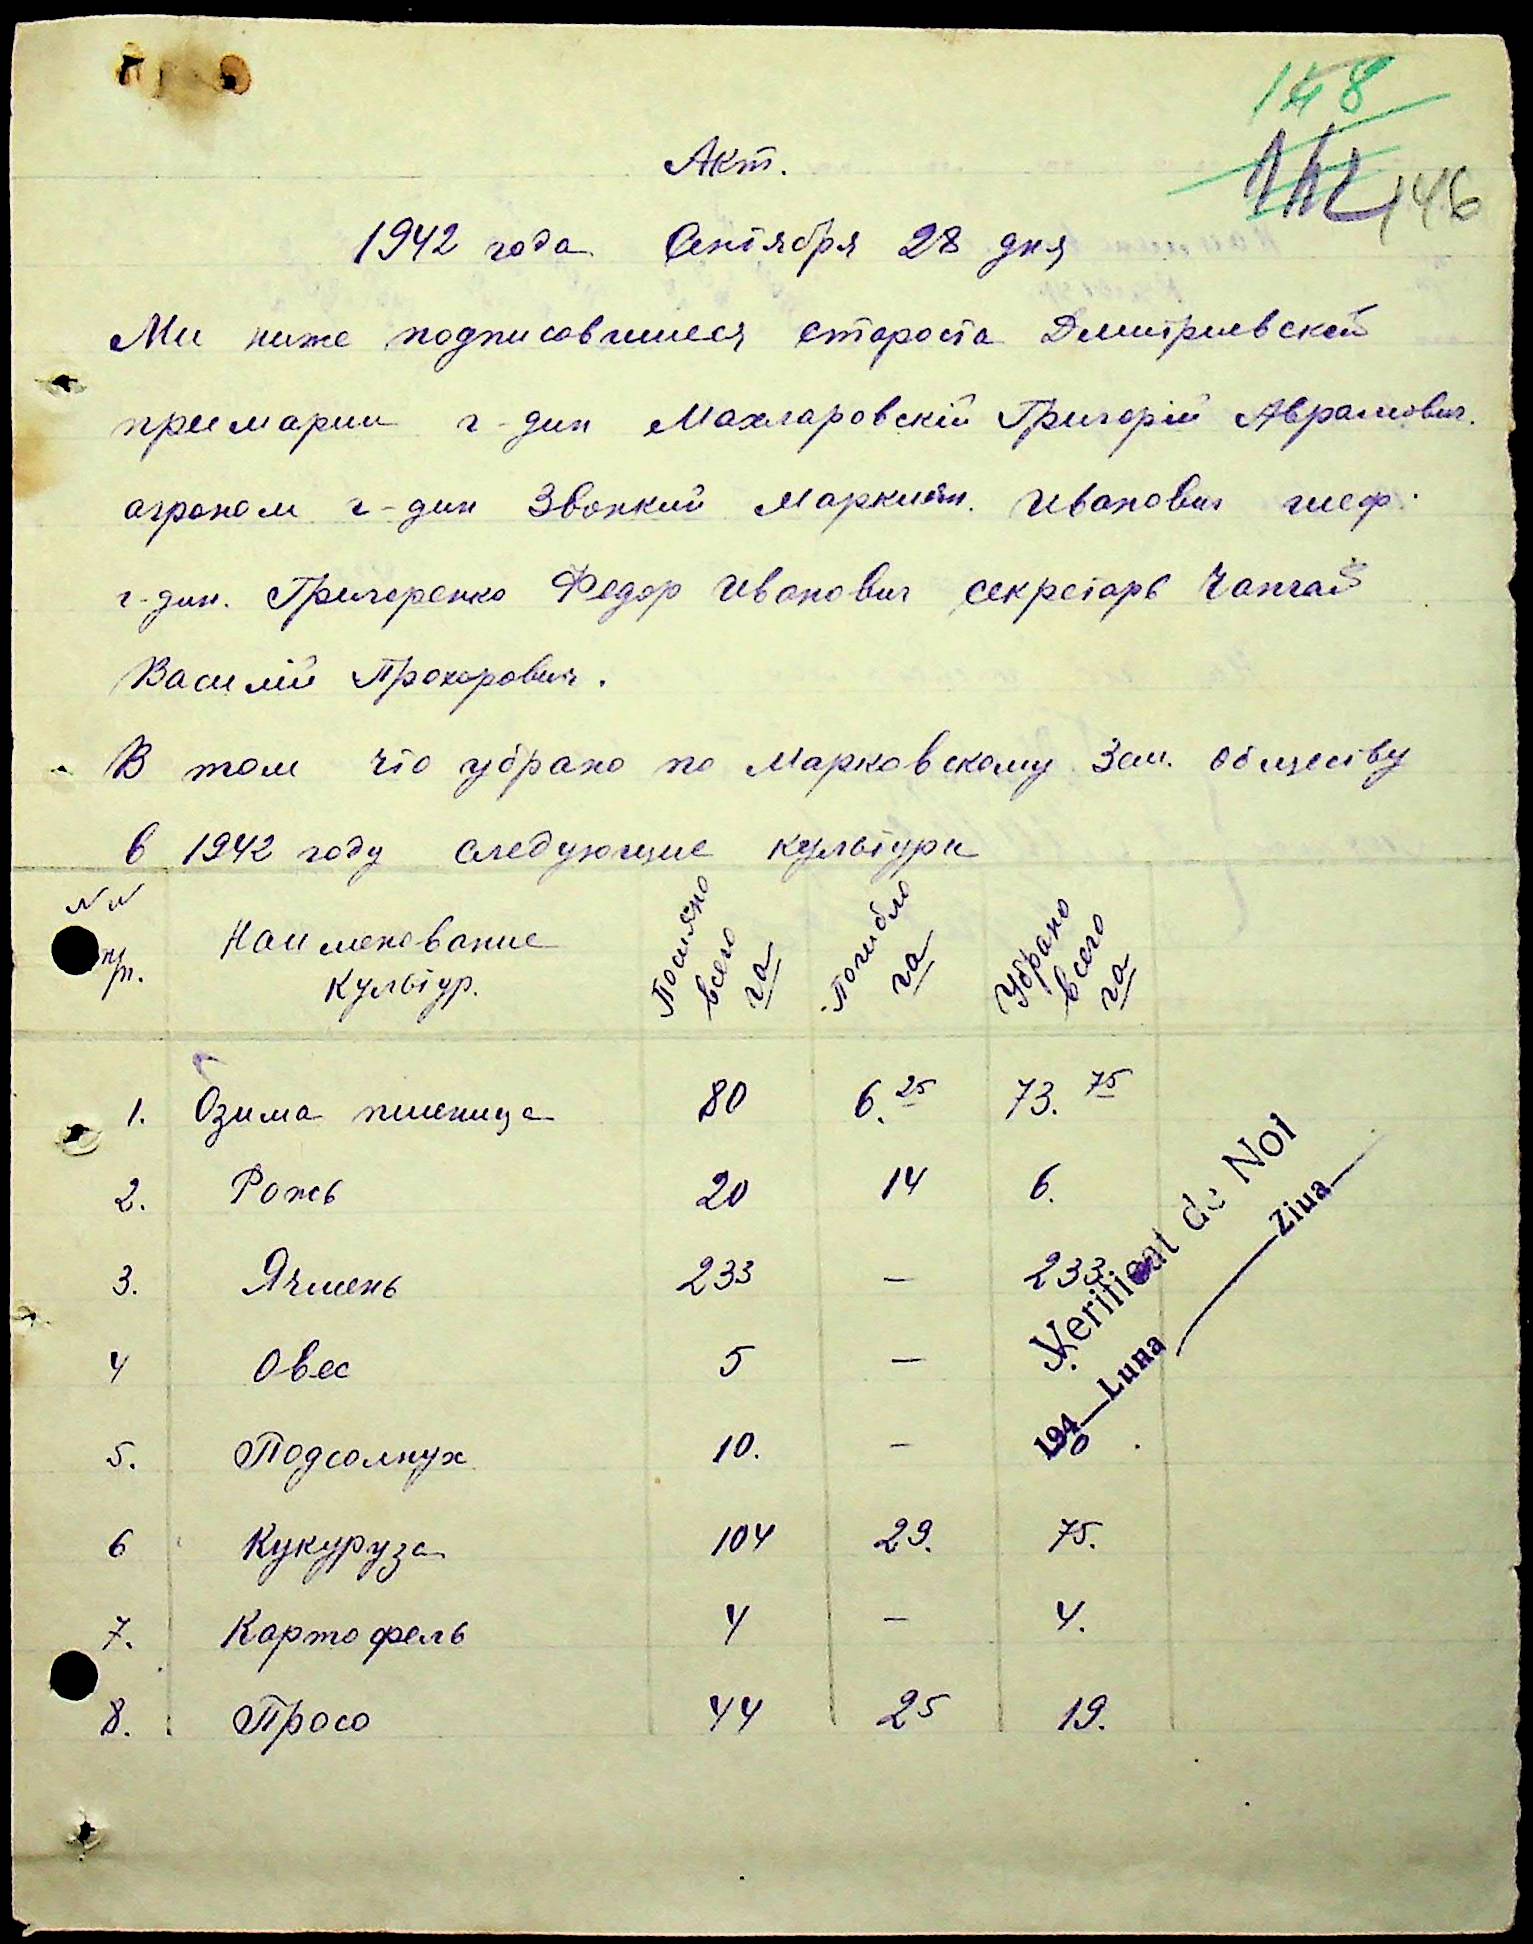 148
142 146
Акт.
1942 года Сентября 28 дня
Ми ниже подписовшиеся староста Дмитриевской
примарии г-дин Махларовскій Григорій Аврамович.
агроном г-дин Звонкий Иванович шеф.
г-дин. Григоренко Федор Иванович секретарь Чапгай
Василій Прохорович.
В том что убрано по Марковскому Зем. обществу
в 1942 году следующие культури
NN пп. Наименование культур. Посияно всего га Погибло га Убрано всего га
1. Озима пшеница 80 6.25 73.75
2. Рожь 20 14 6.
3. Ячмень 233 — 233
4 Овес 5 — 5.
5. Подсолнух 10. — 10
6 Кукуруза 104 29. 75.
7. Картофель 4 — 4.
8. Просо 44 25 19.
Verificat de Noi
194 Luna Ziua